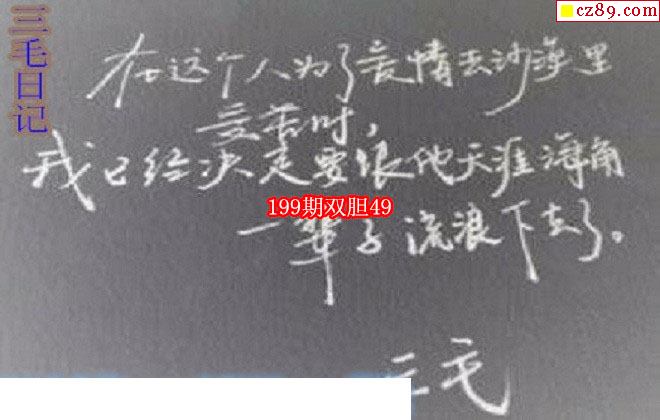 cz89.com
三毛日记
在这个人为了爱情去沙漠里
受苦时，
我已经决定要跟他天涯海角
199期双胆49
一辈子流浪下去了。
三毛